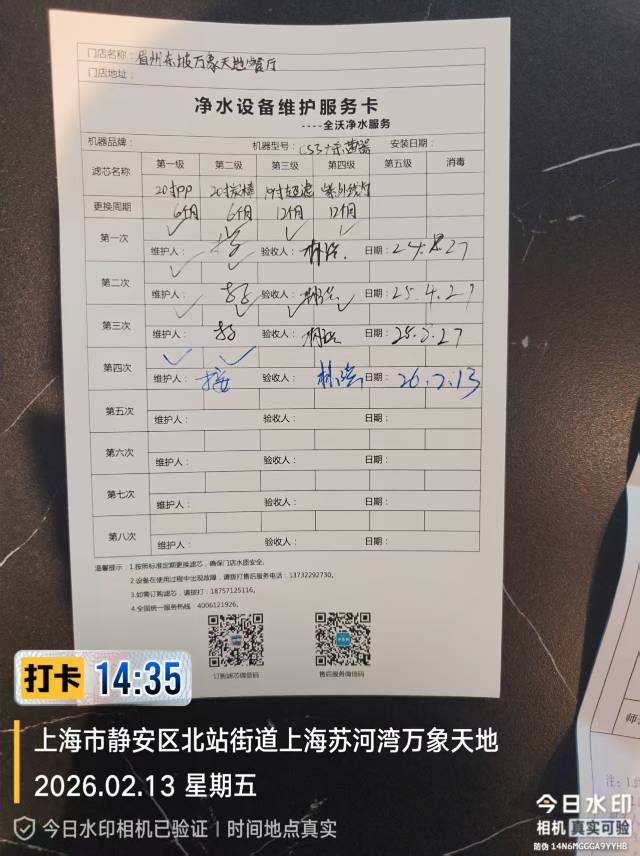 门店名称：眉州东坡万象天地餐厅
门店地址：
净水设备维护服务卡
----全沃净水服务
机器品牌：
机器型号：
安装日期：
滤芯名称 第一级 第二级 第三级 第四级 第五级 消毒
20寸PP 20寸炭棒 超滤 紫外线灯
更换周期 6个月 6个月 12个月 12个月
第一次 ✓ ✓ ✓ ✓
维护人： 验收人： 日期：24.8.27
第二次 ✓ ✓
维护人： 验收人： 日期：25.4.27
第三次 ✓ ✓ ✓ ✓
维护人： 验收人： 日期：
第四次 ✓ ✓
维护人： 验收人： 日期：26.2.13
第五次
维护人： 验收人： 日期：
第六次
维护人： 验收人： 日期：
第七次
维护人： 验收人： 日期：
第八次
维护人： 验收人： 日期：
温馨提示：1.按照标准定期更换滤芯，确保门店水质安全。
2.设备在使用过程中出现故障，请拨打售后服务电话：13732292730。
3.如需订购滤芯，请拨打：18757125116。
4.全国统一服务热线：4006121926。
订购滤芯微信码 售后服务微信码
打卡 14:35
上海市静安区北站街道上海苏河湾万象天地
2026.02.13 星期五
今日水印相机已验证 | 时间地点真实
今日水印
相机 真实可验
防伪 14N6MGGGA9YYHB
注：1.